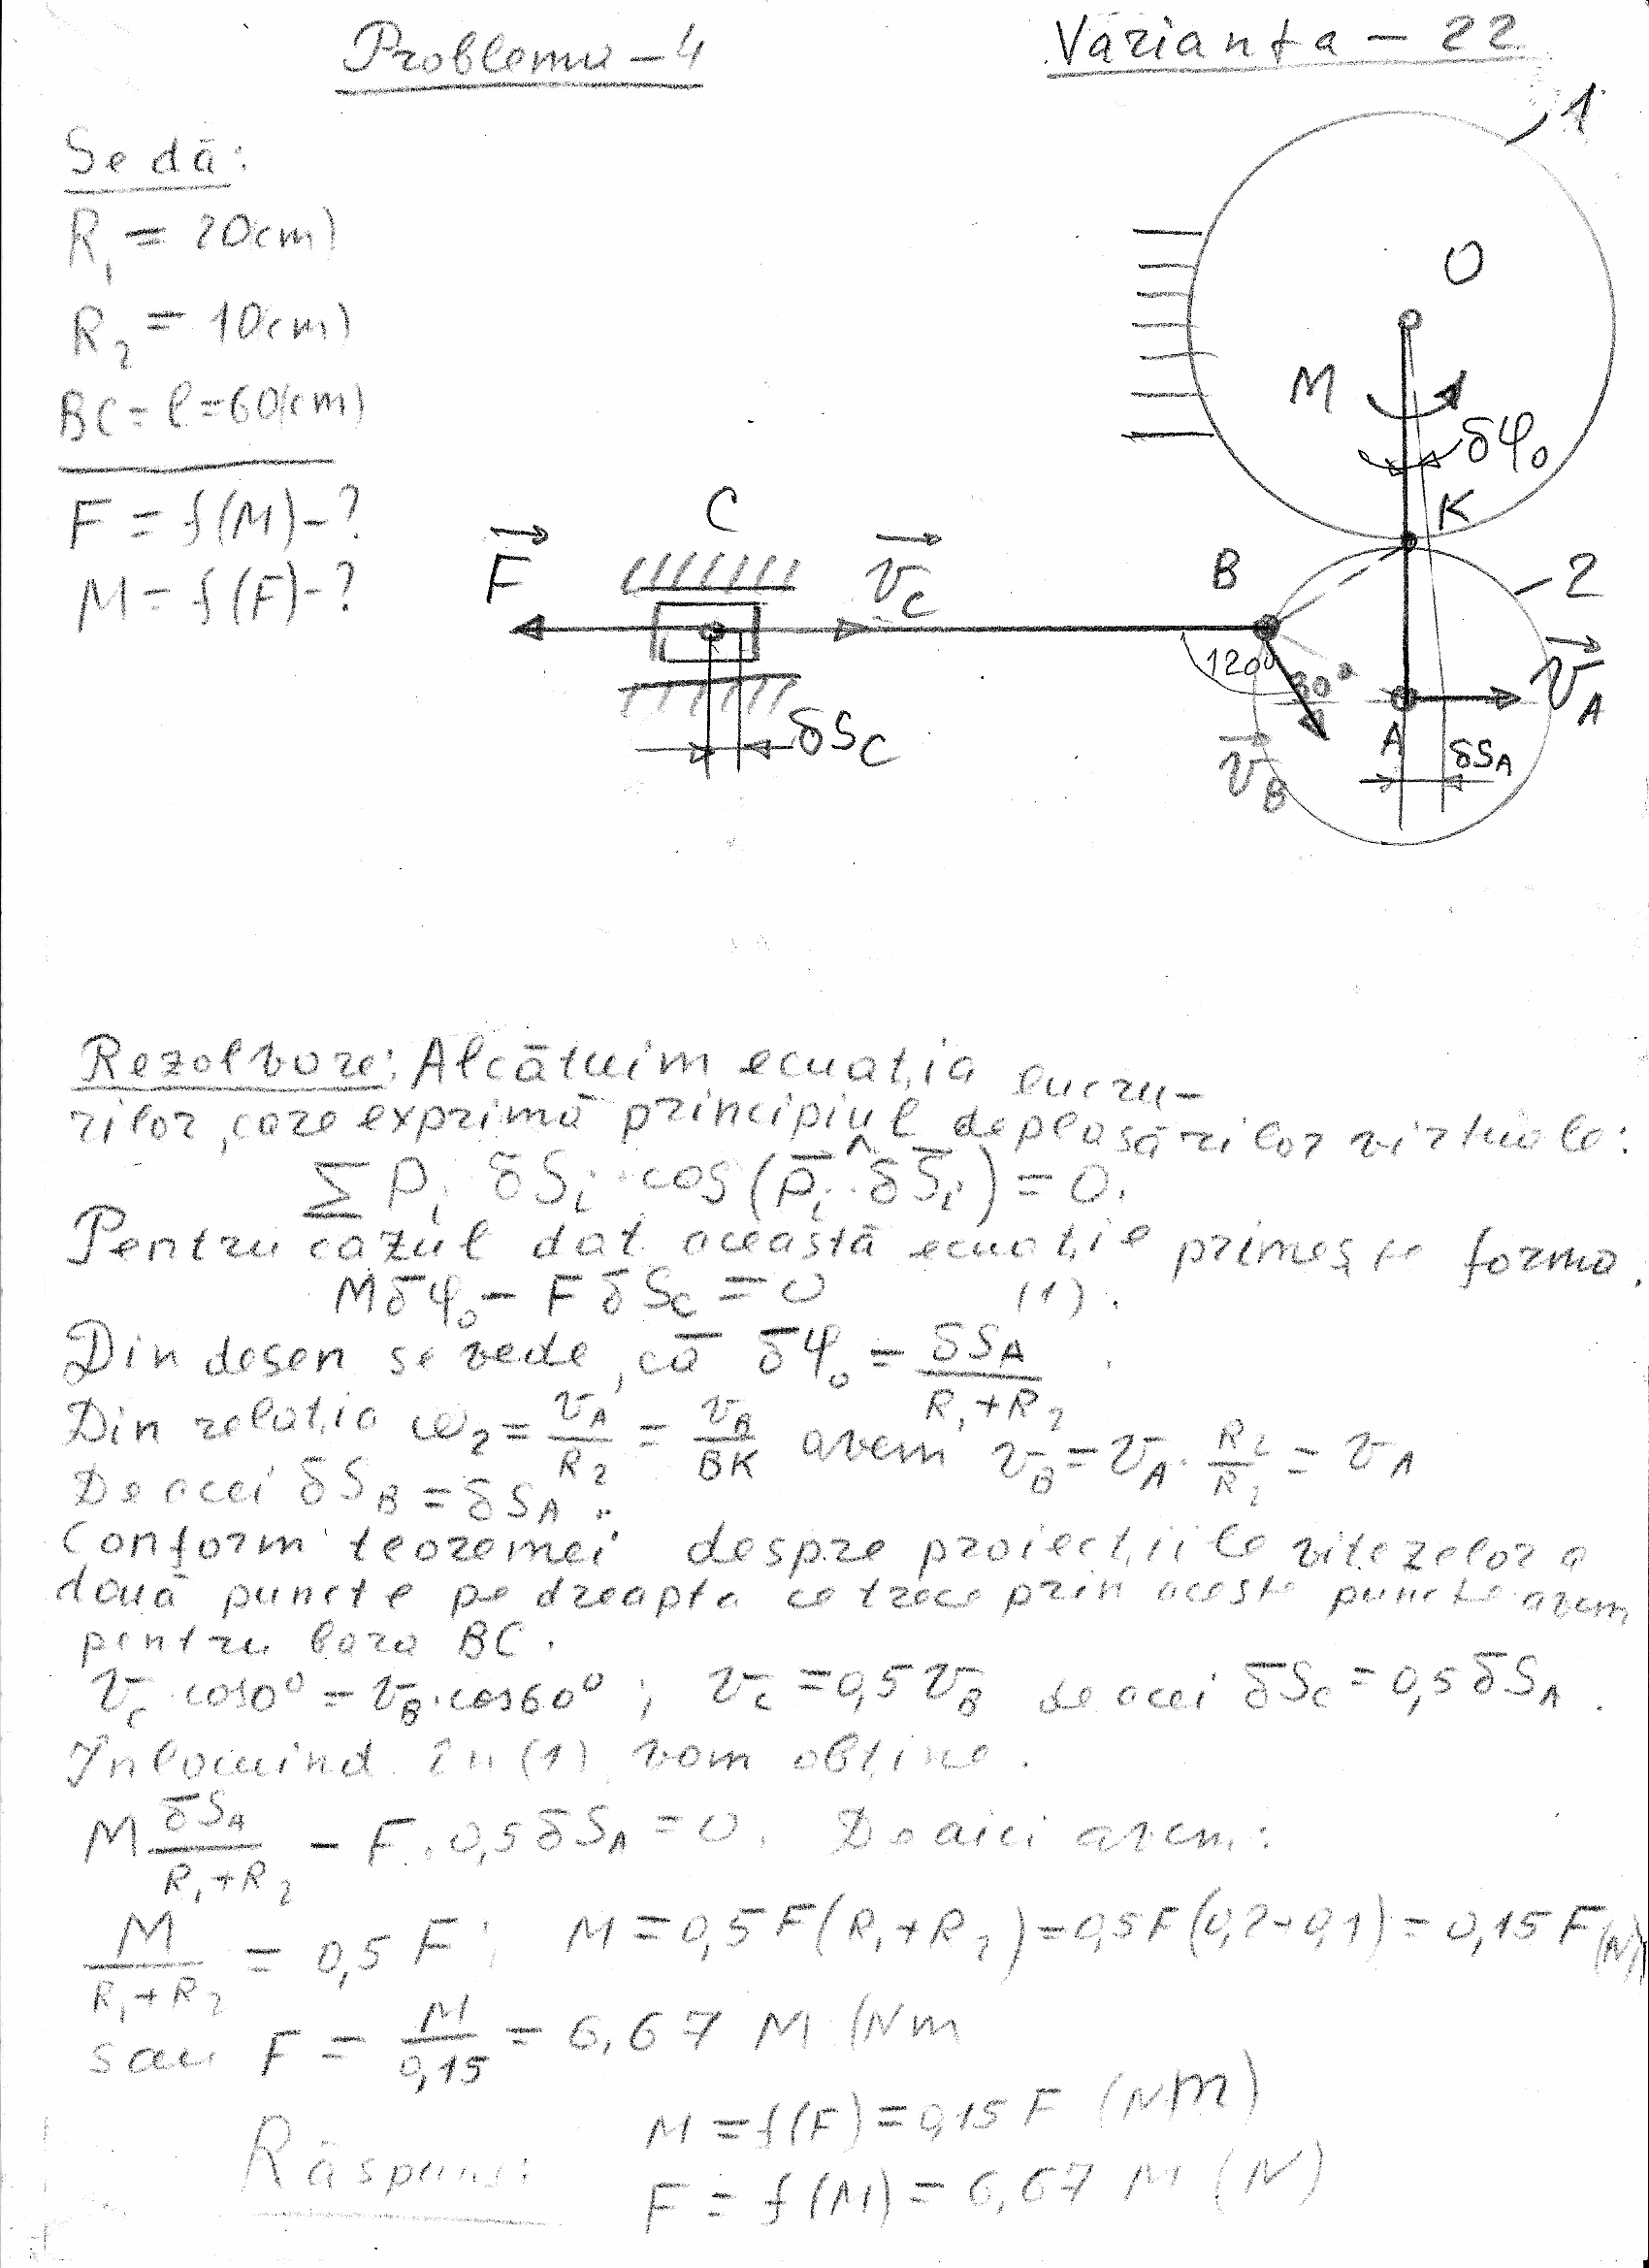 Problema - 4
Varianta - 22
Se dă:
R₁ = 20(cm)
R₂ = 10(cm)
BC = l = 60(cm)
F = f(M) - ?
M = f(F) - ?
1
O
M
δφ₀
K
C
F
v_C
B
2
120°
30°
v_A
A
v_B
δS_C
δS_A
Rezolvare: Alcătuim ecuația lucru-
rilor, care exprimă principiul deplasărilor virtuale:
∑ Pᵢ δSᵢ · cos(P̄ᵢ ^ δS̄ᵢ) = 0.
Pentru cazul dat această ecuație primește forma.
Mδφ₀ - F δS_C = 0 (1).
Din desen se vede, că δφ₀ = δS_A / (R₁+R₂)
Din relația ω₂ = v_A / R₂ = v_B / BK avem v_B = v_A · R₂ / R₂ = v_A
De aceі δS_B = δS_A.
Conform teoremei despre proiecțiile vitezelor a
două puncte pe dreapta ce trece prin aceste puncte avem
pentru bara BC.
v_C cos0° = v_B · cos60° ; v_C = 0,5 v_B de acei δS_C = 0,5 δS_A.
Înlocuind în (1) vom obține.
M δS_A / (R₁+R₂) - F · 0,5 δS_A = 0. De aici avem:
M / (R₁+R₂) = 0,5 F ; M = 0,5 F (R₁+R₂) = 0,5F(0,2+0,1) = 0,15 F (N)
sau F = M / 0,15 = 6,67 M (Nm
M = f(F) = 0,15 F (Nm)
Răspuns:
F = f(M) = 6,67 M (N)